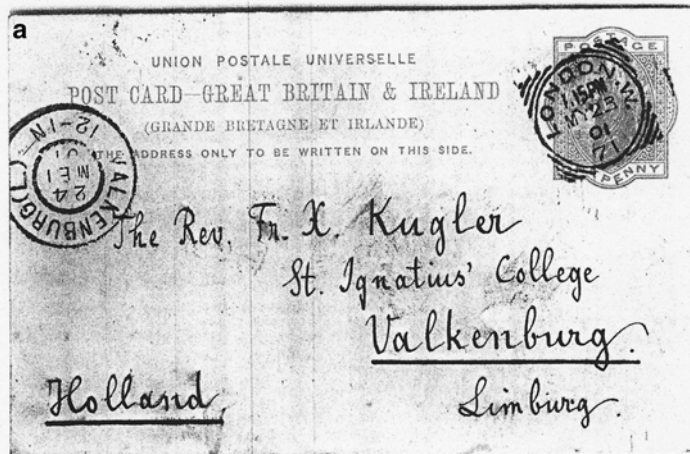 a
UNION POSTALE UNIVERSELLE
POST CARD—GREAT BRITAIN & IRELAND
(GRANDE BRETAGNE ET IRLANDE)
THE ADDRESS ONLY TO BE WRITTEN ON THIS SIDE.
POSTAGE
PENNY
LONDON.W.
1.15PM
MY23
01
71
VALKENBURG(L)
24 MEI
01
12-1N
The Rev. Fr. X. Kugler
St. Ignatius' College
Valkenburg.
Holland,
Limburg.